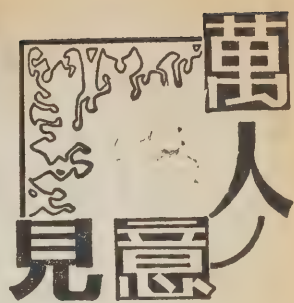 萬人ノ
意見